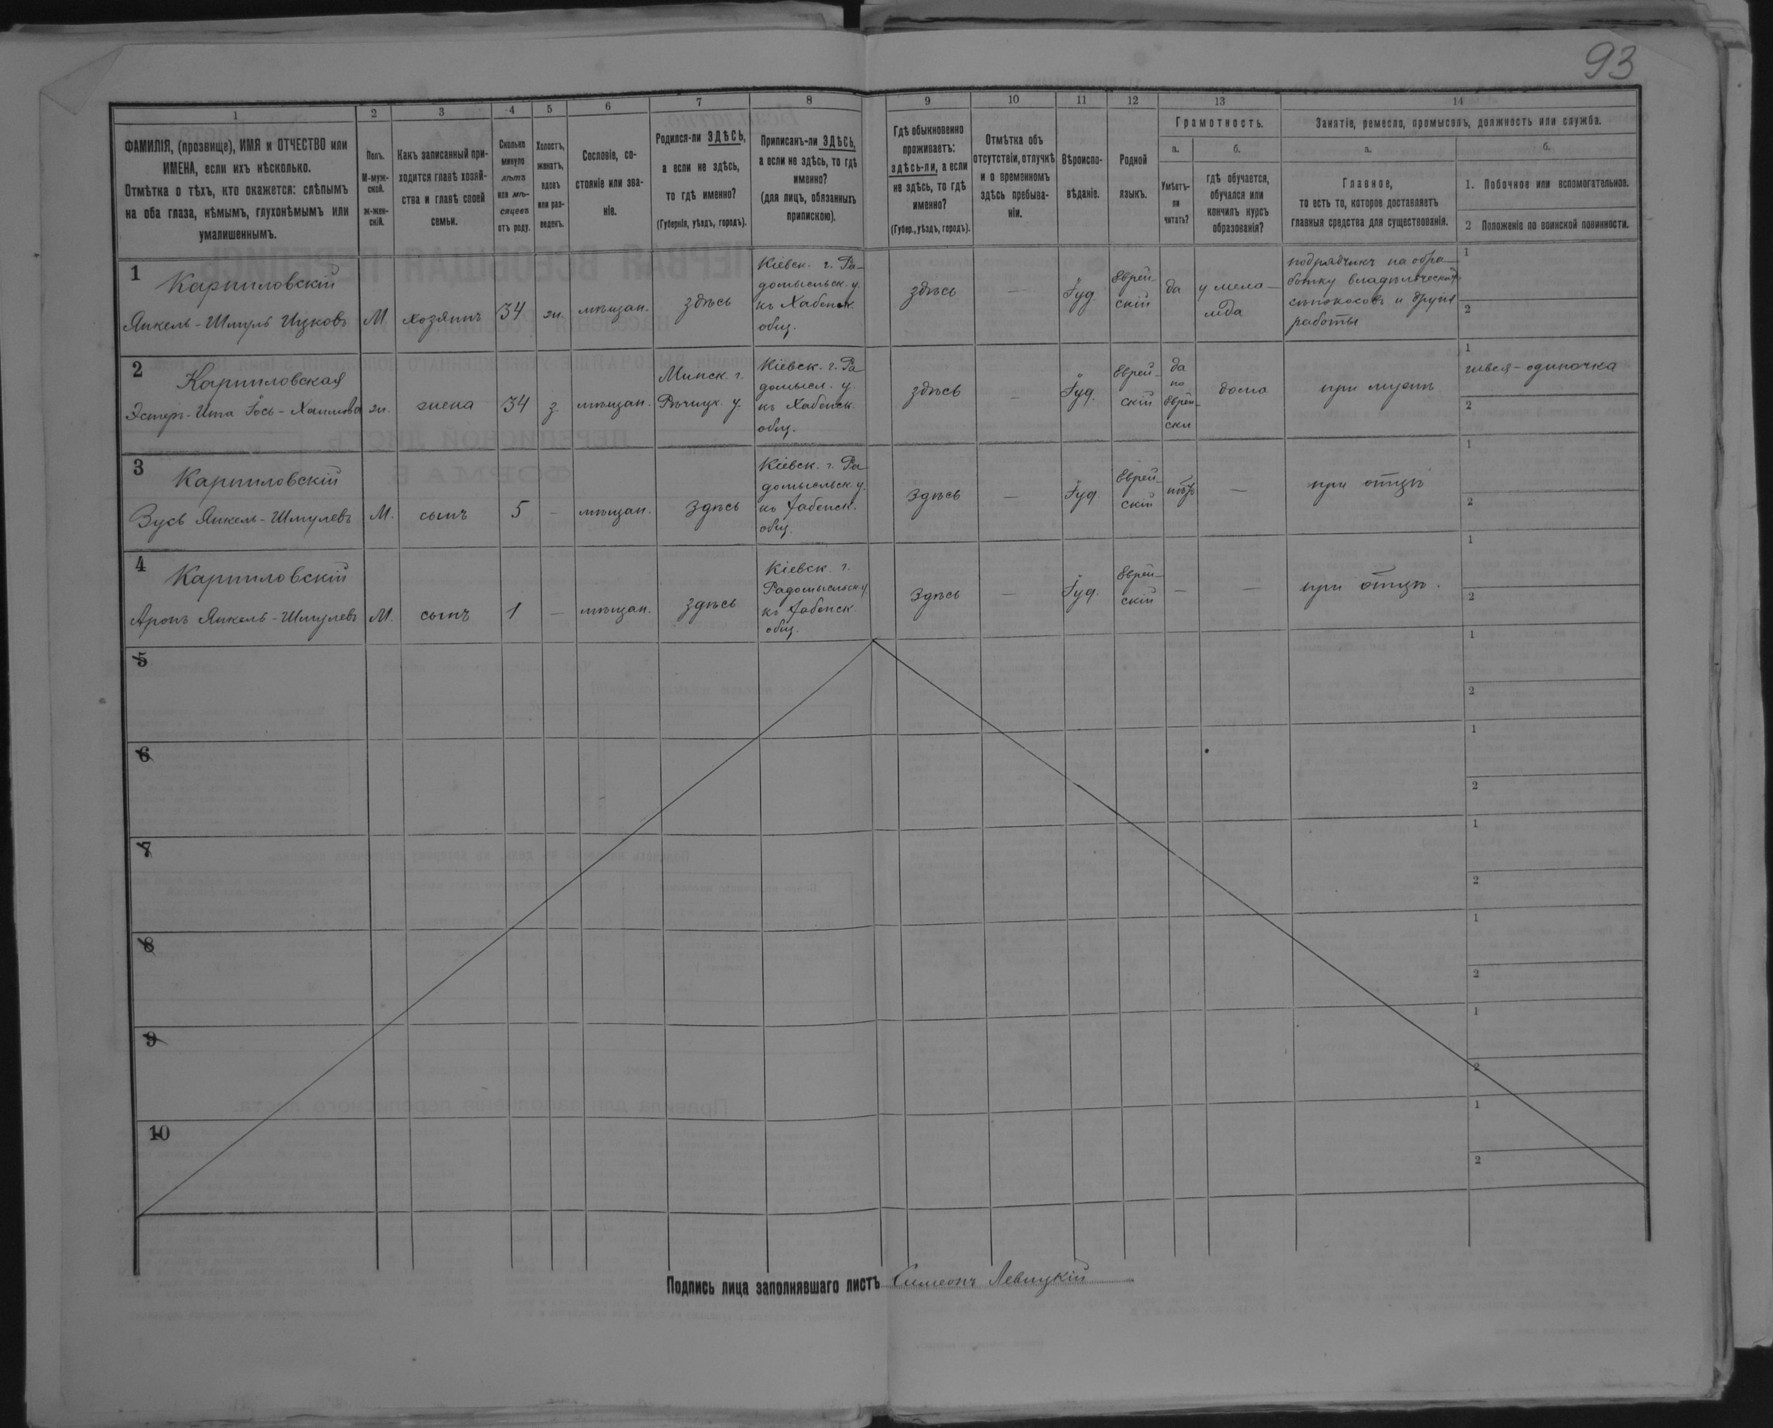 93
1 2 3 4 5 6 7 8 9 10 11 12 13 14
ФАМИЛІЯ, (прозвище), ИМЯ и ОТЧЕСТВО или
ИМЕНА, если ихъ нѣсколько.
Отмѣтка о тѣхъ, кто окажется: слѣпымъ
на оба глаза, нѣмымъ, глухонѣмымъ или
умалишеннымъ.
Полъ.
М-муж-
ской.
ж-жен-
скій.
Какъ записанный при-
ходится главѣ хозяй-
ства и главѣ своей
семьи.
Сколько
минуло
лѣтъ
или мѣ-
сяцевъ
отъ роду.
Холостъ,
женатъ,
вдовъ
или раз-
веденъ.
Сословіе, со-
стояніе или зва-
ніе.
Родился-ли ЗДѢСЬ,
а если не здѣсь,
то гдѣ именно?
(Губернія, уѣздъ, городъ).
Приписанъ-ли ЗДѢСЬ,
а если не здѣсь, то гдѣ
именно?
(для лицъ, обязанныхъ
припискою).
Гдѣ обыкновенно
проживаетъ:
здѣсь-ли, а если
не здѣсь, то гдѣ
именно?
(Губер., уѣздъ, городъ).
Отмѣтка объ
отсутствіи, отлучкѣ
и о временномъ
здѣсь пребыва-
ніи.
Вѣроиспо-
вѣданіе.
Родной
языкъ.
Грамотность.
а.
Умѣетъ-
ли
читать?
б.
гдѣ обучается,
обучался или
кончилъ курсъ
образованія?
Занятіе, ремесло, промыселъ, должность или служба.
а.
Главное,
то есть то, которое доставляетъ
главныя средства для существованія.
б.
1. Побочное или вспомогательное.
2 Положеніе по воинской повинности.
1
Карпиловскій
Янкель-Шмуль Ицковъ
М
хозяинъ
34
ж.
мѣщан.
здѣсь
Кіевск. г. Ра-
домысльск. у.
къ Хабенск
общ.
здѣсь
—
Іуд.
Еврей-
скій
да
у мела-
мда
подрядчикъ на обра-
ботку владѣльческихъ
сѣнокосовъ и другія
работы
1
2
2
Карпиловская
Эстеръ-Ита Іось-Хаимова
ж.
жена
34
з.
мѣщан.
Минск. г.
Рѣчицк. у.
Кіевск. г. Ра
домысл. у
къ Хабенск.
общ.
здѣсь
—
Іуд.
Еврей-
скій
да
по
Еврей-
ски
дома
при мужѣ
1
швея-одиночка
2
3
Карпиловскій
Зусь Янкель-Шмулевъ
М.
сынъ
5
—
мѣщан.
здѣсь
Кіевск. г. Ра
домысльск. у
къ Хабенск.
общ.
здѣсь
—
Іуд
Еврей
скій
нѣтъ
—
при отцѣ
1
2
4
Карпиловскій
Аронъ Янкель-Шмулевъ
М.
сынъ
1
—
мѣщан.
здѣсь
Кіевск г.
Радомысльск у
къ Хабенск
общ.
здѣсь
—
Іуд.
Еврей-
скій
—
—
при отцѣ.
1
2
5
1
2
6
1
2
7
1
2
8
1
2
9
1
2
10
1
2
Подпись лица заполнявшаго листъ Симеонъ Левицкій